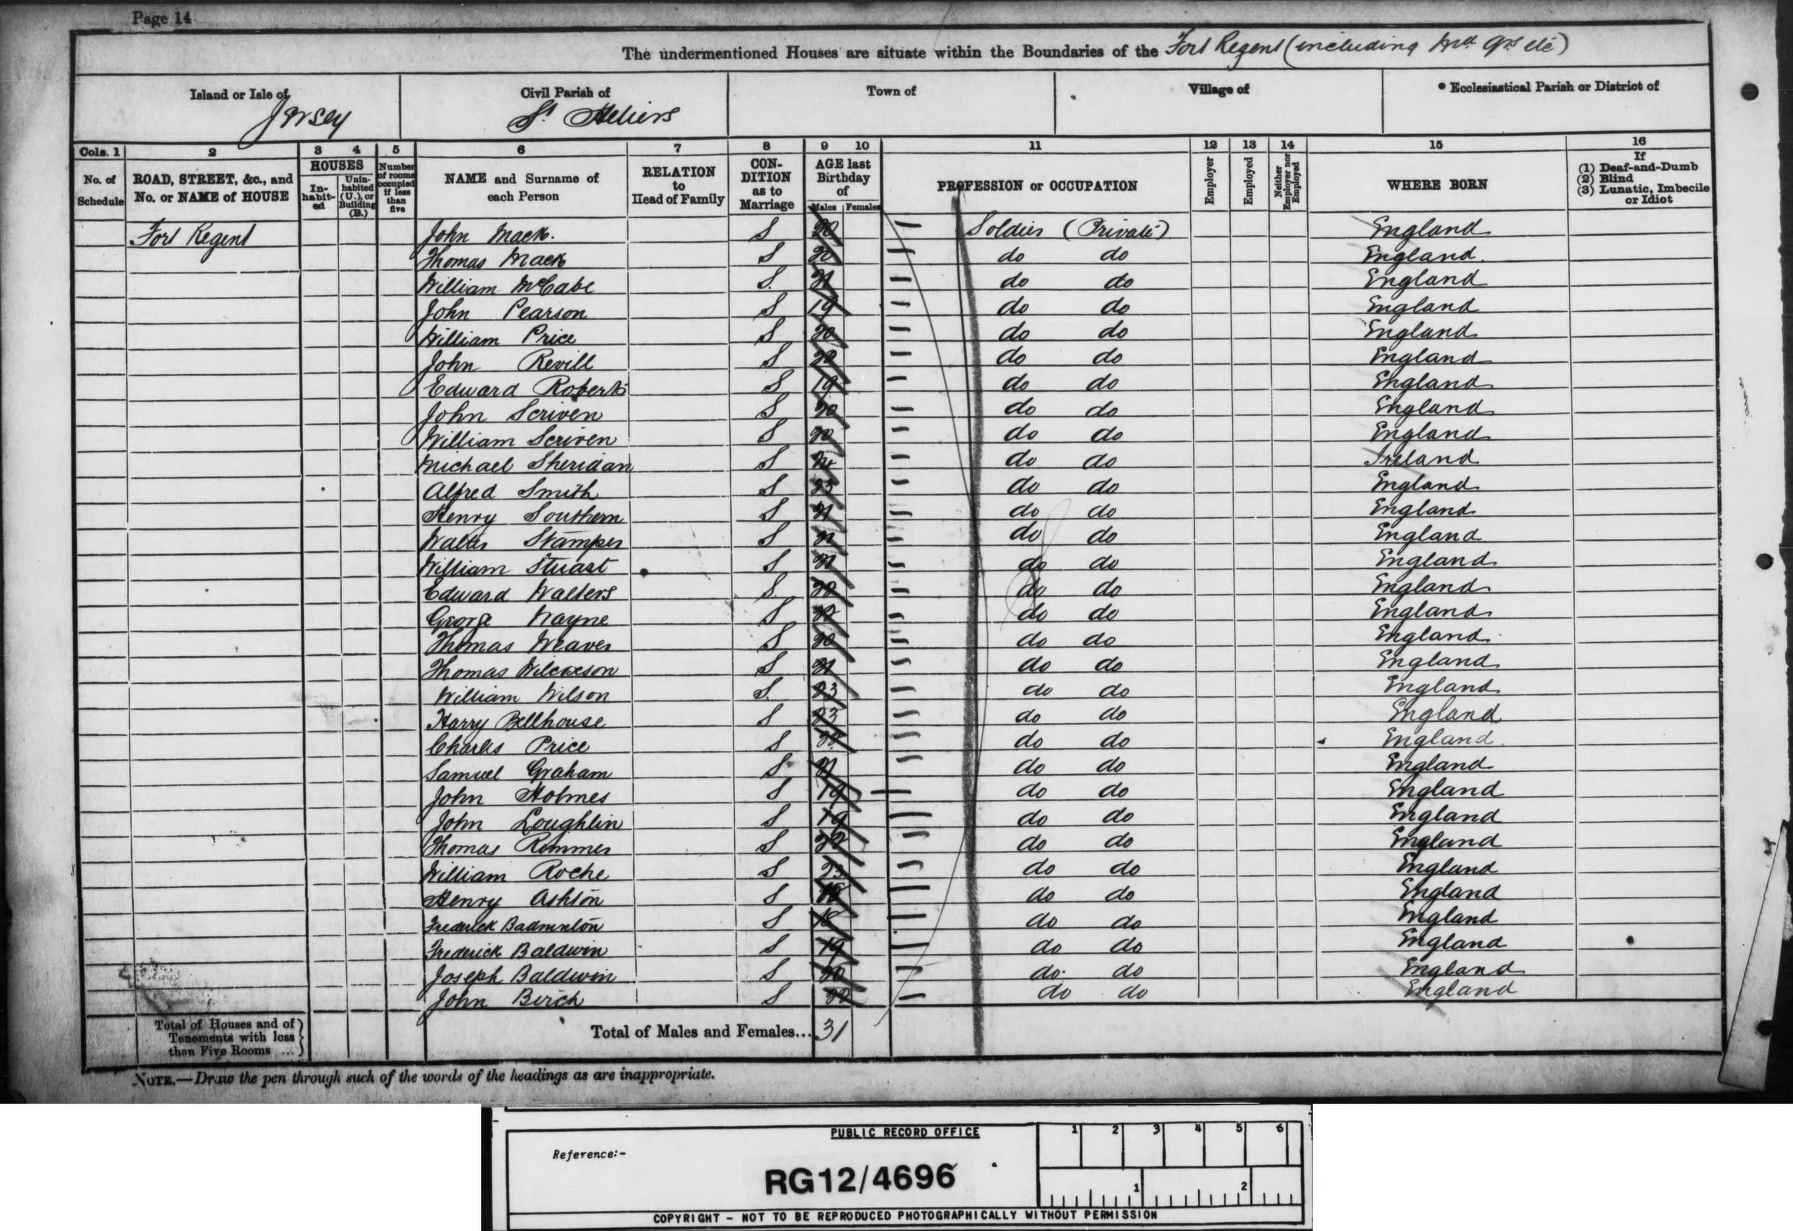 Page 14
The undermentioned Houses are situate within the Boundaries of the Fort Regent (including Md Qrs etc)
Island or Isle of Jersey
Civil Parish of St. Heliers
Town of
Village of
Ecclesiastical Parish or District of
Cols. 1 2 3 4 5 6 7 8 9 10 11 12 13 14 15 16
No. of Schedule
ROAD, STREET, &c., and No. or NAME of HOUSE
HOUSES
In-habit-ed
Unin-habited (U.), or Building (B.)
Number of rooms occupied if less than five
NAME and Surname of each Person
RELATION to Head of Family
CON-DITION as to Marriage
AGE last Birthday of
Males Females
PROFESSION or OCCUPATION
Employer
Employed
Neither nor Employer nor Employed
WHERE BORN
If
(1) Deaf-and-Dumb
(2) Blind
(3) Lunatic, Imbecile or Idiot
Fort Regent John Mack. S 20 Soldier (Private) England
Thomas Mack S 20 do do England
William McCabe S. 21 do do England
John Pearson S 19 do do England
William Price S 20 do do England
John Revill S do do England
Edward Roberts S 19 do do England
John Scriven S 20 do do England
William Scriven S 20 do do England
Michael Sheridan S do do Ireland
Alfred Smith S 23 do do England
Henry Southern S 21 do do England
Walter Stamper S do do England
William Stuart S do do England
Edward Walters S do do England
George Wayne S do do England
Thomas Weaver S 20 do do England
Thomas Wilcoxson S 21 do do England
William Wilson S. 23 do do England
Harry Bellhouse S 23 do do England
Charles Price S do do England
Samuel Graham S 21 do do England
John Holmes S 19 do do England
John Loughlin S 19 do do England
Thomas Rimmer S 22 do do England
William Roche S 23 do do England
Henry Ashton S 18 do do England
Frederick Badminton S 18 do do England
Frederick Baldwin S 19 do do England
Joseph Baldwin S 20 do do England
John Birch S do do England
Total of Houses and of Tenements with less than Five Rooms ...
Total of Males and Females... 31
NOTE.—Draw the pen through such of the words of the headings as are inappropriate.
PUBLIC RECORD OFFICE
1 2 3 4 5 6
Reference:-
RG12/4696
1 2
COPYRIGHT - NOT TO BE REPRODUCED PHOTOGRAPHICALLY WITHOUT PERMISSION